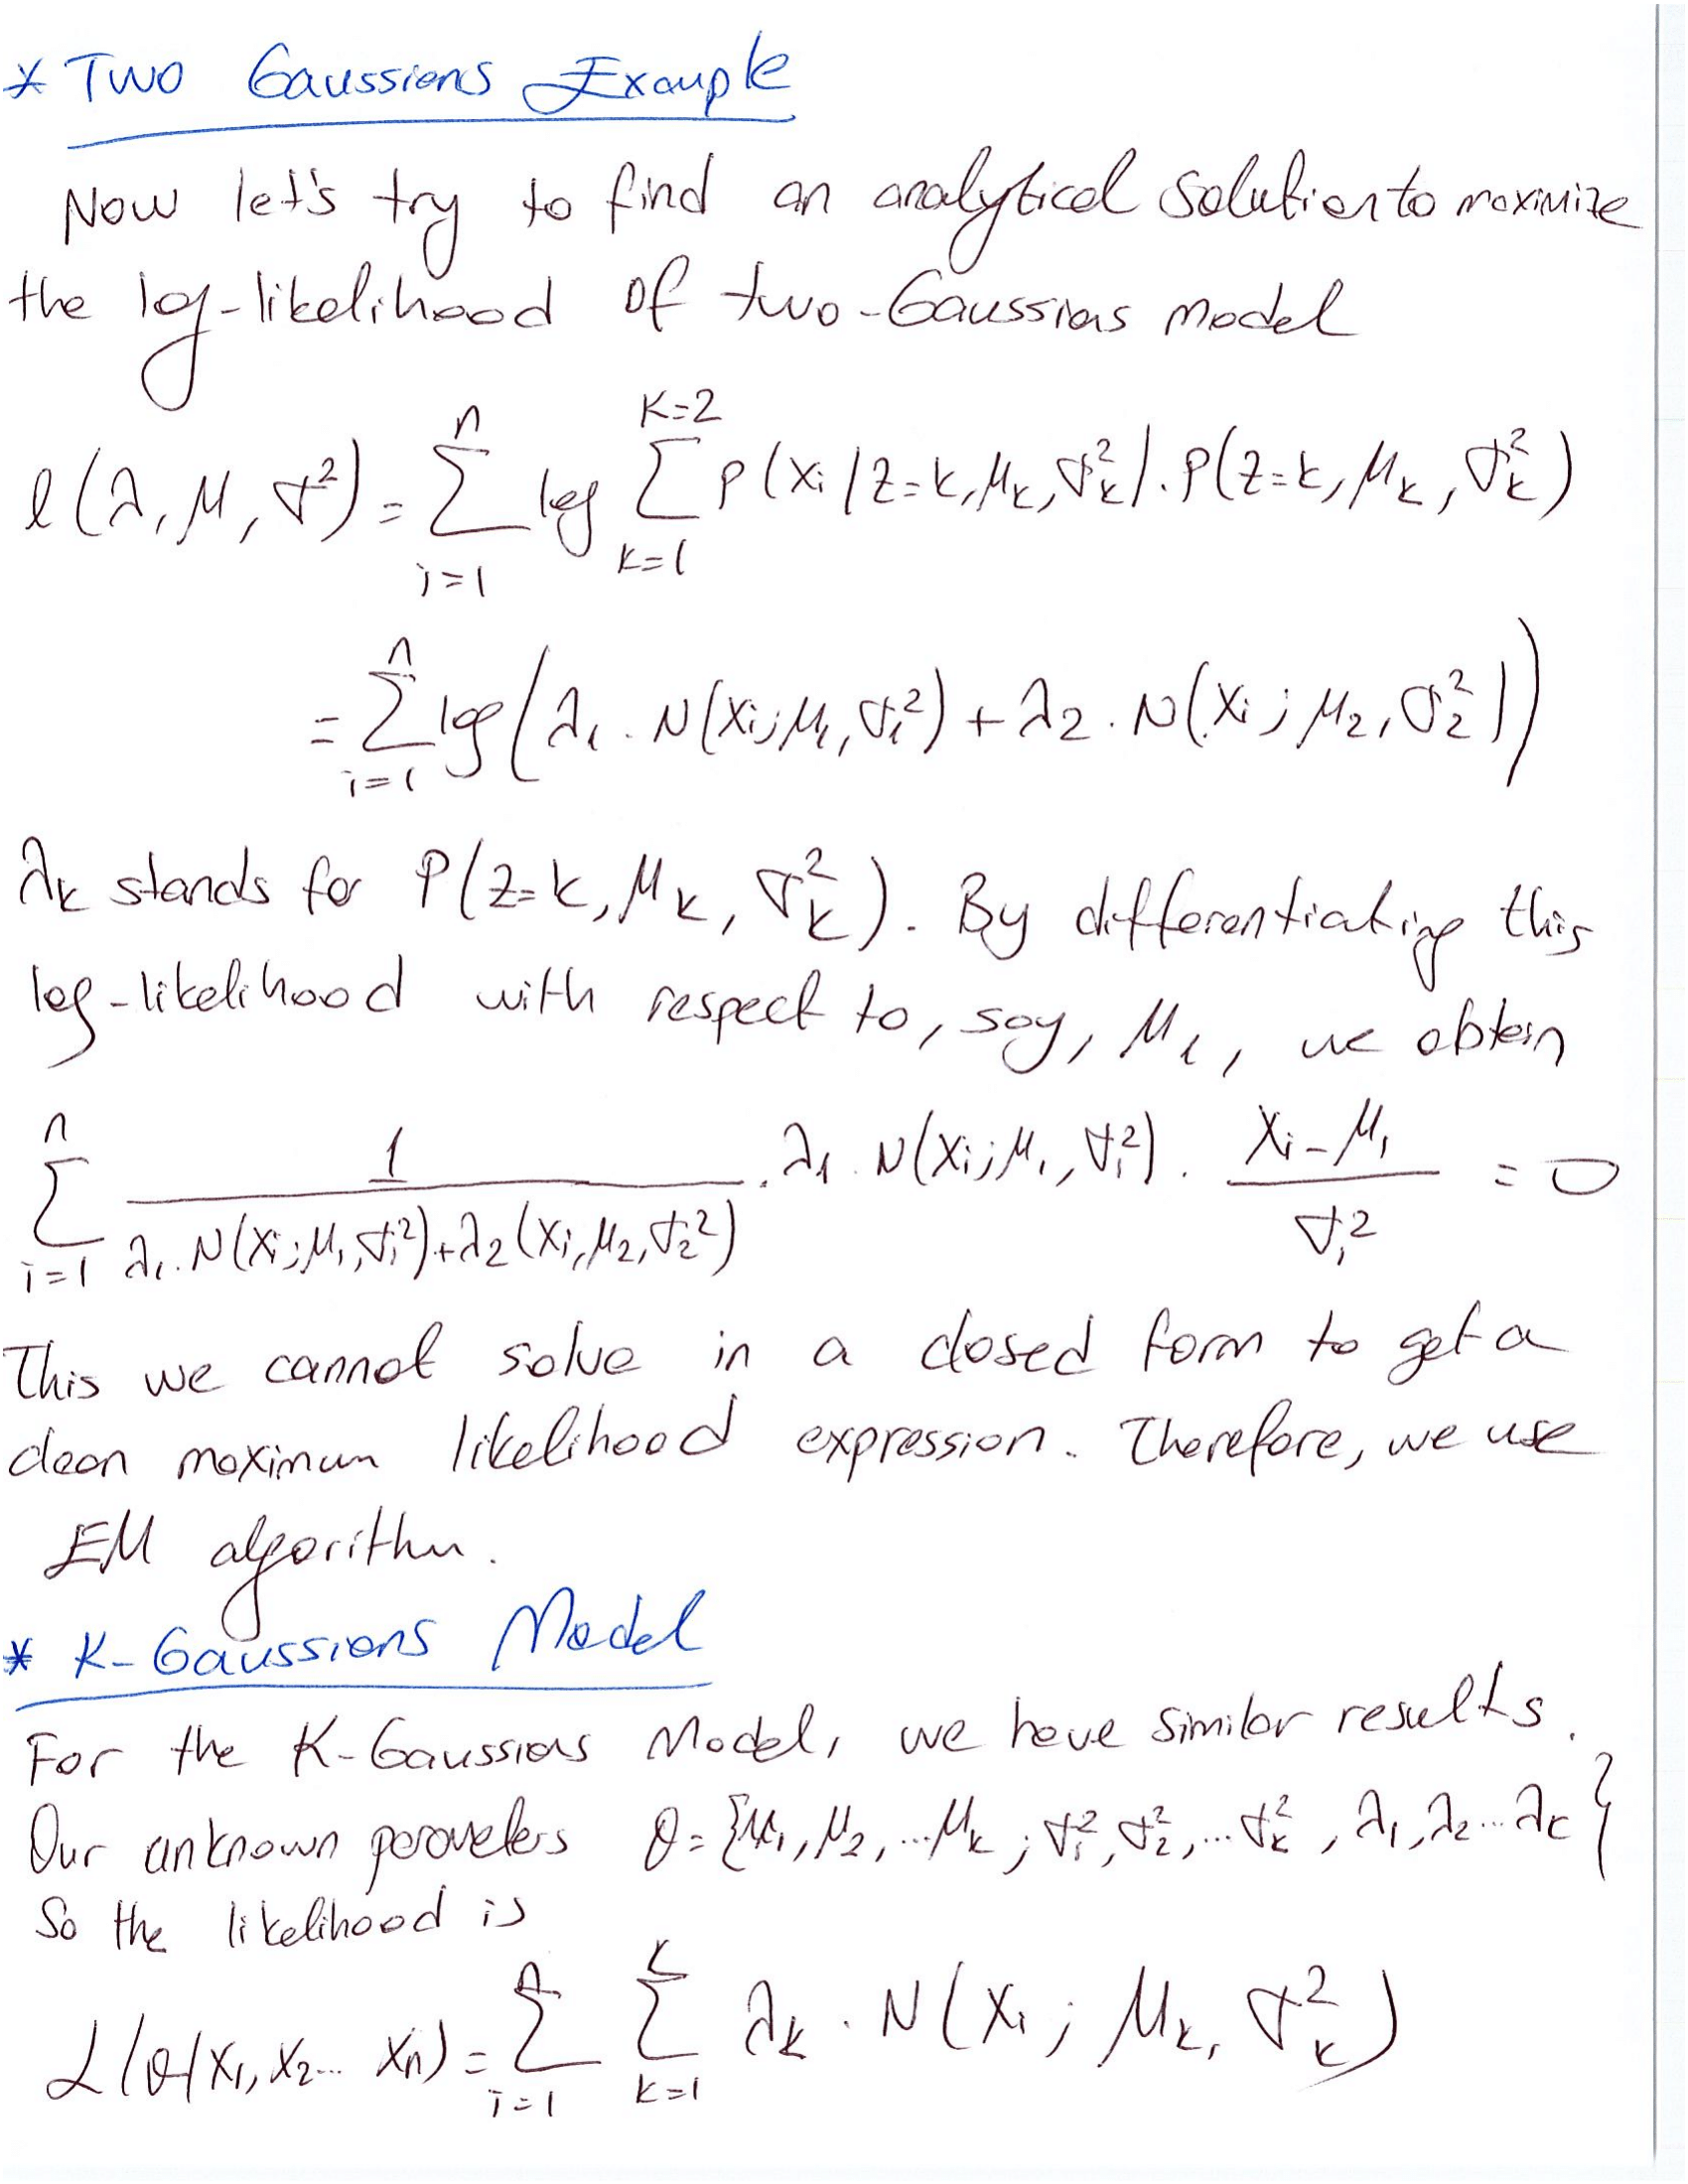 * Two Gaussians Example
Now let's try to find an analytical solution to maximize
the log-likelihood of two-Gaussians model
l(λ, μ, σ²) = Σ_{i=1}^{n} log Σ_{k=1}^{K=2} p(xᵢ / z=k, μₖ, σₖ²) . p(z=k, μₖ, σₖ²)
= Σ_{i=1}^{n} log(λ₁ . N(xᵢ; μ₁, σ₁²) + λ₂ . N(xᵢ; μ₂, σ₂²))
λₖ stands for P(z=k, μₖ, σₖ²). By differentiating this
log-likelihood with respect to, say, μ₁, we obtain
Σ_{i=1}^{n} 1 / (λ₁ . N(xᵢ; μ₁, σ₁²) + λ₂ (xᵢ, μ₂, σ₂²)) . λ₁ . N(xᵢ; μ₁, σ₁²) . (xᵢ - μ₁) / σ₁² = 0
This we cannot solve in a closed form to get a
clean maximum likelihood expression. Therefore, we use
EM algorithm.
* K-Gaussians Model
For the K-Gaussians Model, we have similar results.
Our unknown parameters θ = {μ₁, μ₂, ... μₖ ; σ₁², σ₂², ... σₖ², λ₁, λ₂ ... λₖ}
So the likelihood is
L(θ/x₁, x₂ ... xₙ) = Σ_{i=1}^{n} Σ_{k=1}^{K} λₖ . N(xᵢ ; μₖ, σₖ²)